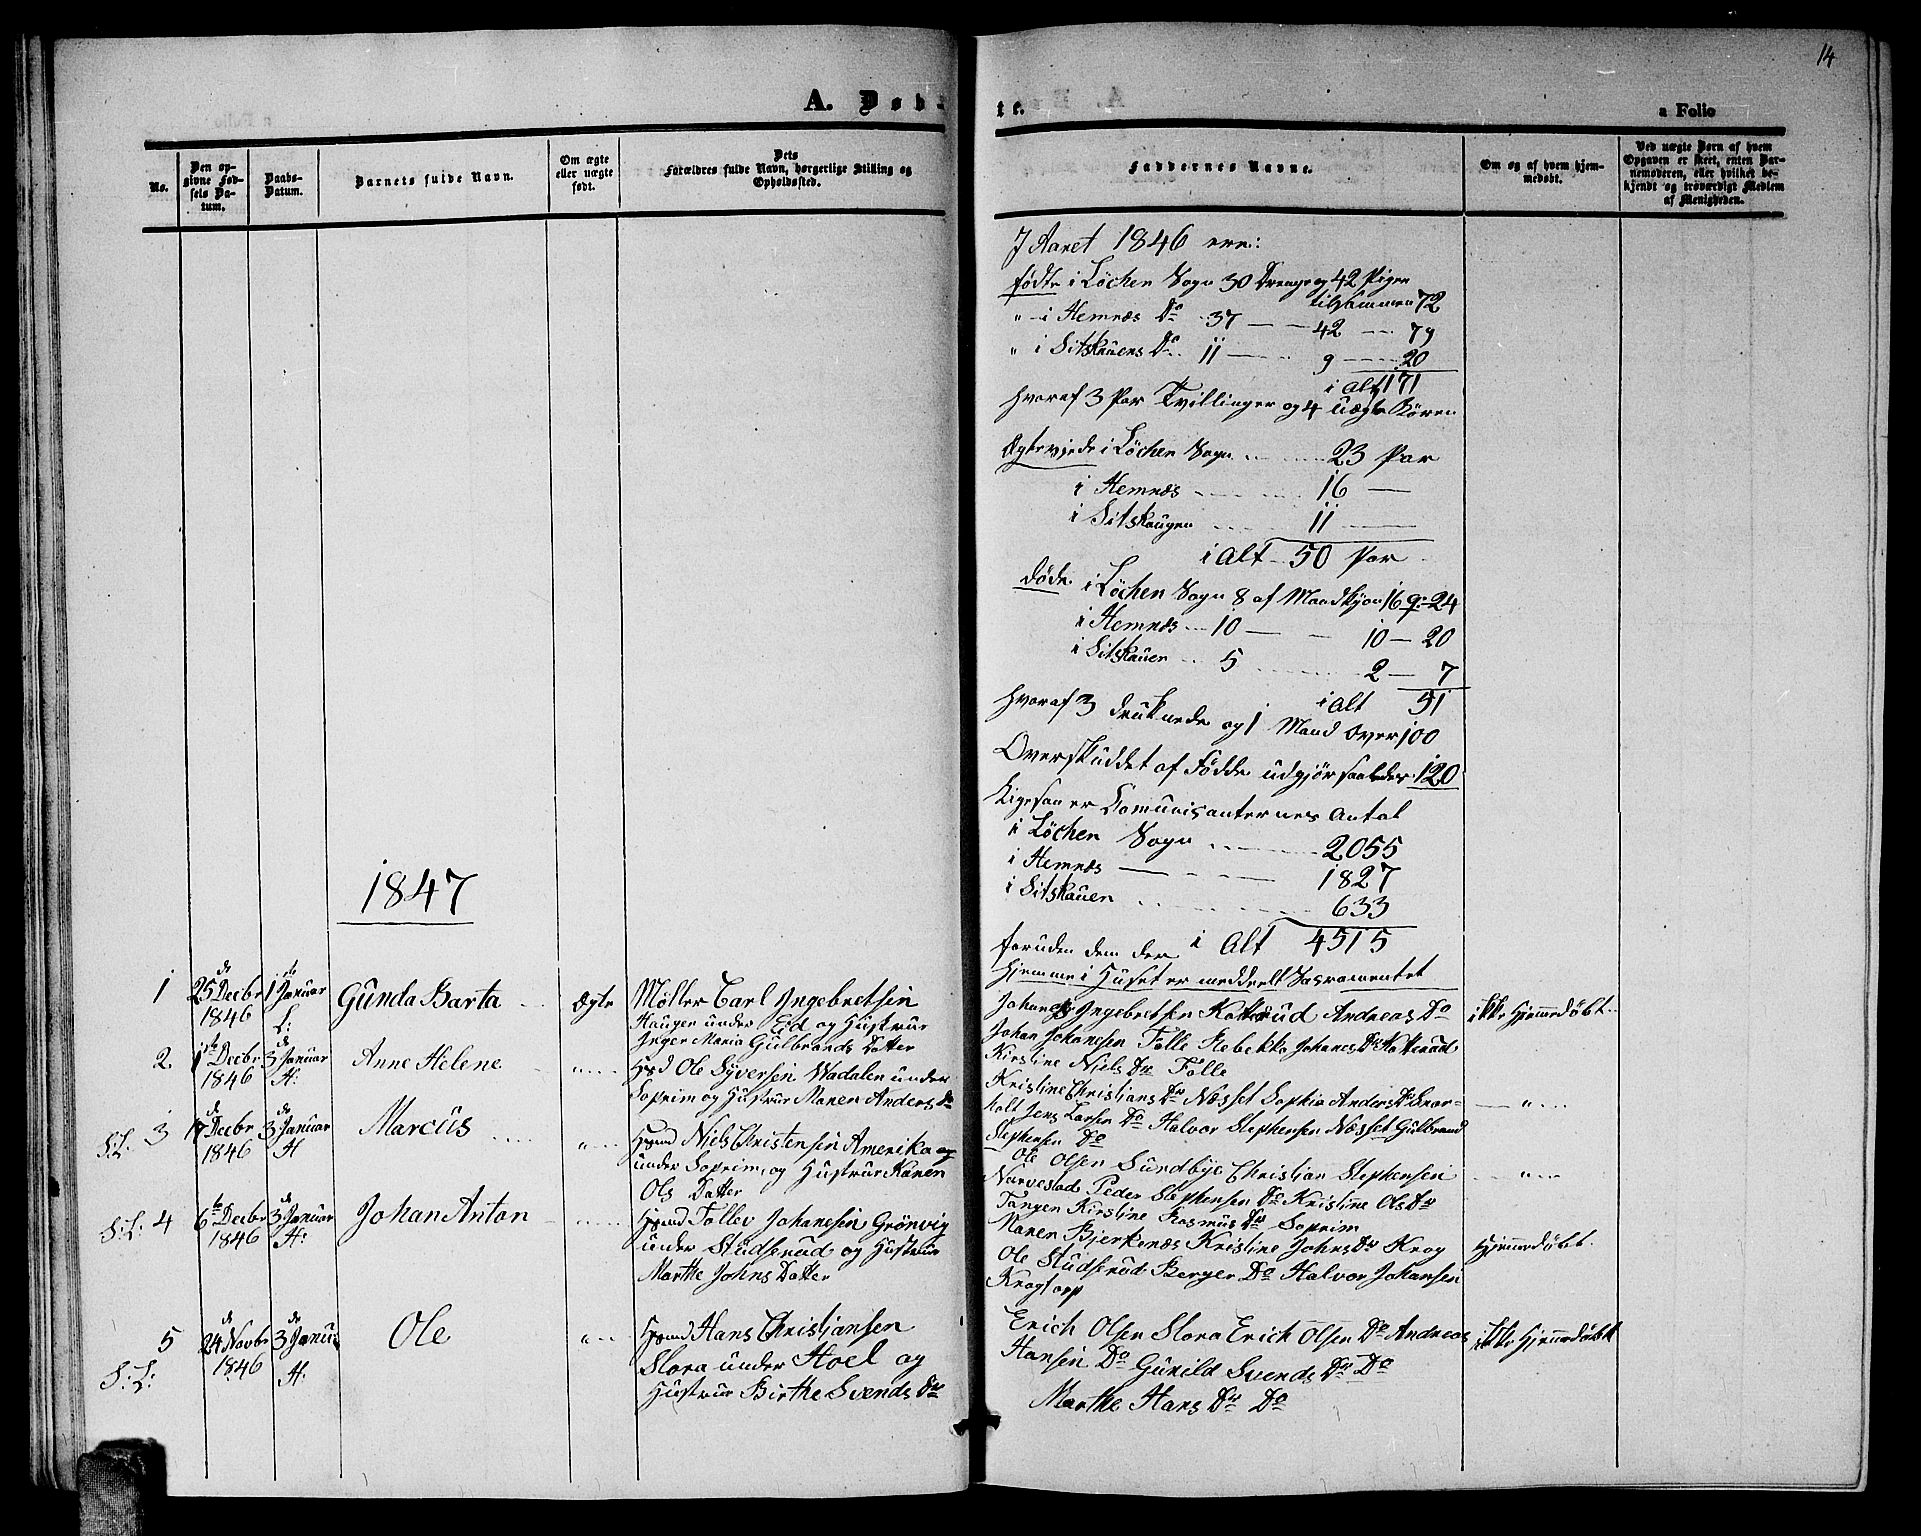 14
A. Døbte.
a Folio
No.
Den opgivne Fødsels Datum.
Daabs-Datum.
Barnets fulde Navn.
Om ægte eller uægte født.
Dets Forældres fulde Navn, borgerlige Stilling og Opholdssted.
Faddernes Navne.
Om og af hvem hjemmedøbt.
Ved uægte Børn af hvem Opgaven er skeet, enten Barnemoderen, eller hvilket bekjendt og troværdigt Medlem af Menigheden.
I Aaret 1846 ere:
fødte i Löchen Sogn 30 Drenge og 42 Piger
tilsammen 72
" - i Hemnæs Do 37 — 42 — 79
" i Sitskauens Do 11 — 9 — 20
i Alt 171
hvoraf 3 Par Tvillinger og 4 uægte Börn
Ægteviede i Löchen Sogn 23 Par
i Hemnæs 16 —
i Sitskaugen 11 —
i Alt 50 Par
døde i Löchen Sogn 8 af Mandkjön 16 q: 24
i Hemnæs 10 — 10 — 20
i Sitskauen 5 2 — 7
i Alt 51
hvoraf 3 druknede og 1 Mand over 100
Overskuddet af Födde udgjör saaledes 120
Ligesaa er Comunicanternes Antal
i Löchen Sogn 2055
i Hemnæs — 1827
i Sitskauen 633
i Alt 4515
foruden dem der
hjemme i Huset er meddeelt Sacramentet
1847
1 25de Decbr 1846 1ste Januar L: Gunda Barta Ægte Møller Carl Ingebretsen
Haugen under Eid og Hustrue
Inger Maria Gulbrands Datter
Johanes Ingebretsen Katterud Andreas Do
Johan Johanesen Tolle Rebekka Johanes Dr Katterud
Kirstine Niels Dr Tolle
ikke hjemmedöbt
2 1ste Decbr 1846 3de Januar H: Anne Helene " Hsd Ole Syversen Wadalen under
Soprim og Hustrue Maren Anders Dr
Kristine Christians Dr Næsset Sophie Anders Dr Snar-
holt Jens Larsen Do Halvor Stephensen Næsset Gulbrand
Stephensen Do
— " —
S:L: 3 17de Decbr 1846 3de Januar H Marcus " Hsmd Niels Christensen Amerika og
under Soprim, og Hustrue Karen
Ols Datter
Ole Olsen Sundbye Christian Stephensen
Narvestad Peder Stephensen Do Kristine Ols Dr
Tangen Kirstine Rasmus Dr Soprim
— " —
S:L: 4 6te Decbr 1846 3de Januar H: Johan Anton " Hsmd Tollev Johanesen Grönvig
under Studserud og Hustrue
Marthe Johns Datter
Maren Bjerkenæs Kristine Johns Dr Krog
Ole Studserud Berger Do Halvor Johansen
Krogtorp
Hjemmedöbt.
S:L: 5 24de Novbr 1846 3de Januar H. Ole " Hsmd Hans Christiansen
Slora under Hoel og
Hustrue Birthe Svends Dr
Erich Olsen Slora Erich Olsen Do Andreas
Hansen Do Gunild Svends Dr Do
Marthe Hans Dr Do
ikke hjemmedöbt